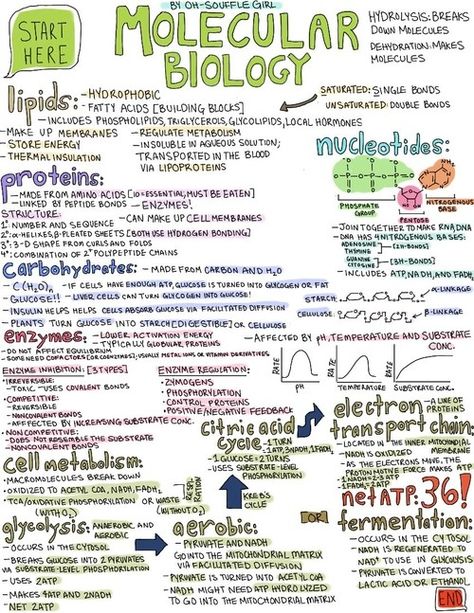 START HERE
BY OH-SOUFFLE GIRL
MOLECULAR
BIOLOGY
HYDROLYSIS: BREAKS
DOWN MOLECULES
DEHYDRATION: MAKES
MOLECULES
lipids: - HYDROPHOBIC
- FATTY ACIDS [BUILDING BLOCKS]
SATURATED: SINGLE BONDS
UNSATURATED: DOUBLE BONDS
- INCLUDES PHOSPHOLIPIDS, TRIGLYCEROLS, GLYCOLIPIDS, LOCAL HORMONES
- MAKE UP MEMBRANES
- STORE ENERGY
- THERMAL INSULATION
- REGULATE METABOLISM
- INSOLUBLE IN AQUEOUS SOLUTION;
TRANSPORTED IN THE BLOOD
VIA LIPOPROTEINS
nucleotides:
PHOSPHATE
GROUP
PENTOSE
NITROGENOUS
BASE
- JOIN TOGETHER TO MAKE RNA, DNA
- DNA HAS 4 NITROGENOUS BASES:
ADENOSINE
THYMINE
[2 H-BONDS]
GUANINE
CYTOSINE
[3 H-BONDS]
- INCLUDES ATP, NADH, AND FADH2
proteins:
- MADE FROM AMINO ACIDS [10=ESSENTIAL, MUST BE EATEN]
- LINKED BY PEPTIDE BONDS
- ENZYMES!
STRUCTURE:
- CAN MAKE UP CELL MEMBRANES
1° NUMBER AND SEQUENCE
2° α-HELIXES, β-PLEATED SHEETS [BOTH USE HYDROGEN BONDING]
3° 3-D SHAPE FROM CURLS AND FOLDS
4° COMBINATION OF 2+ POLYPEPTIDE CHAINS
Carbohydrates: - MADE FROM CARBON AND H2O
- C(H2O)n
- IF CELLS HAVE ENOUGH ATP, GLUCOSE IS TURNED INTO GLYCOGEN OR FAT
- GLUCOSE!!
- LIVER CELLS CAN TURN GLYCOGEN INTO GLUCOSE!
- INSULIN HELPS HELPS CELLS ABSORB GLUCOSE VIA FACILITATED DIFFUSION
- PLANTS TURN GLUCOSE INTO STARCH [DIGESTIBLE] OR CELLULOSE
STARCH
α-LINKAGE
CELLULOSE
β-LINKAGE
enzymes: - LOWER ACTIVATION ENERGY
- TYPICALLY GLOBULAR PROTEINS
- AFFECTED BY pH, TEMPERATURE AND SUBSTRATE
CONC.
- DO NOT AFFECT EQUILIBRIUM
- SOME NEED COFACTORS [OR COENZYMES], USUALLY METAL IONS OR VITAMIN DERIVATIVES
ENZYME INHIBITION: [3 TYPES]
- IRREVERSIBLE:
- TOXIC - USES COVALENT BONDS
- COMPETITIVE:
- REVERSIBLE
- NONCOVALENT BONDS
- AFFECTED BY INCREASING SUBSTRATE CONC.
- NONCOMPETITIVE:
- DOES NOT RESEMBLE THE SUBSTRATE
- NONCOVALENT BONDS
ENZYME REGULATION:
- ZYMOGENS
- PHOSPHORYLATION
- CONTROL PROTEINS
- POSITIVE/NEGATIVE FEEDBACK
RATE
pH
RATE
TEMPERATURE
RATE
SUBSTRATE CONC.
citric acid
cycle:
- 1 TURN
= 1 ATP, 3 NADH, 1 FADH2
- 1 GLUCOSE = 2 TURNS
- USES SUBSTRATE-LEVEL
PHOSPHORYLATION
KREBS
CYCLE
electron
transport chain:
- A LINE OF
PROTEINS
- LOCATED IN THE INNER MITOCHONDRIAL
MEMBRANE
- NADH IS OXIDIZED
- AS THE ELECTRONS MOVE, THE
PROTON MOTIVE FORCE MAKES ATP
1 NADH = 2-3 ATP
1 FADH2 = 2 ATP
net ATP: 36!
cell metabolism:
- MACROMOLECULES BREAK DOWN
- OXIDIZED TO ACETYL COA, NADH, FADH2
- TCA/OXIDATIVE PHOSPHORYLATION OR WASTE
(WITH O2)
(WITHOUT O2)
RESPIRATION
glycolysis:
- ANAEROBIC AND
AEROBIC
- OCCURS IN THE CYTOSOL
- BREAKS GLUCOSE INTO 2 PYRUVATES
VIA SUBSTRATE-LEVEL PHOSPHORYLATION
- USES 2 ATP
- MAKES 4 ATP AND 2 NADH
- NET 2 ATP
aerobic:
- PYRUVATE AND NADH
GO INTO THE MITOCHONDRIAL MATRIX
VIA FACILITATED DIFFUSION
- PYRUVATE IS TURNED INTO ACETYL COA
- NADH MIGHT NEED ATP HYDROLYZED
TO GO INTO THE MITOCHONDRIAL MATRIX
OR
fermentation:
- OCCURS IN THE CYTOSOL
- NADH IS REGENERATED TO
NAD+ TO USE IN GLYCOLYSIS
- PYRUVATE IS CONVERTED TO
LACTIC ACID OR ETHANOL
END